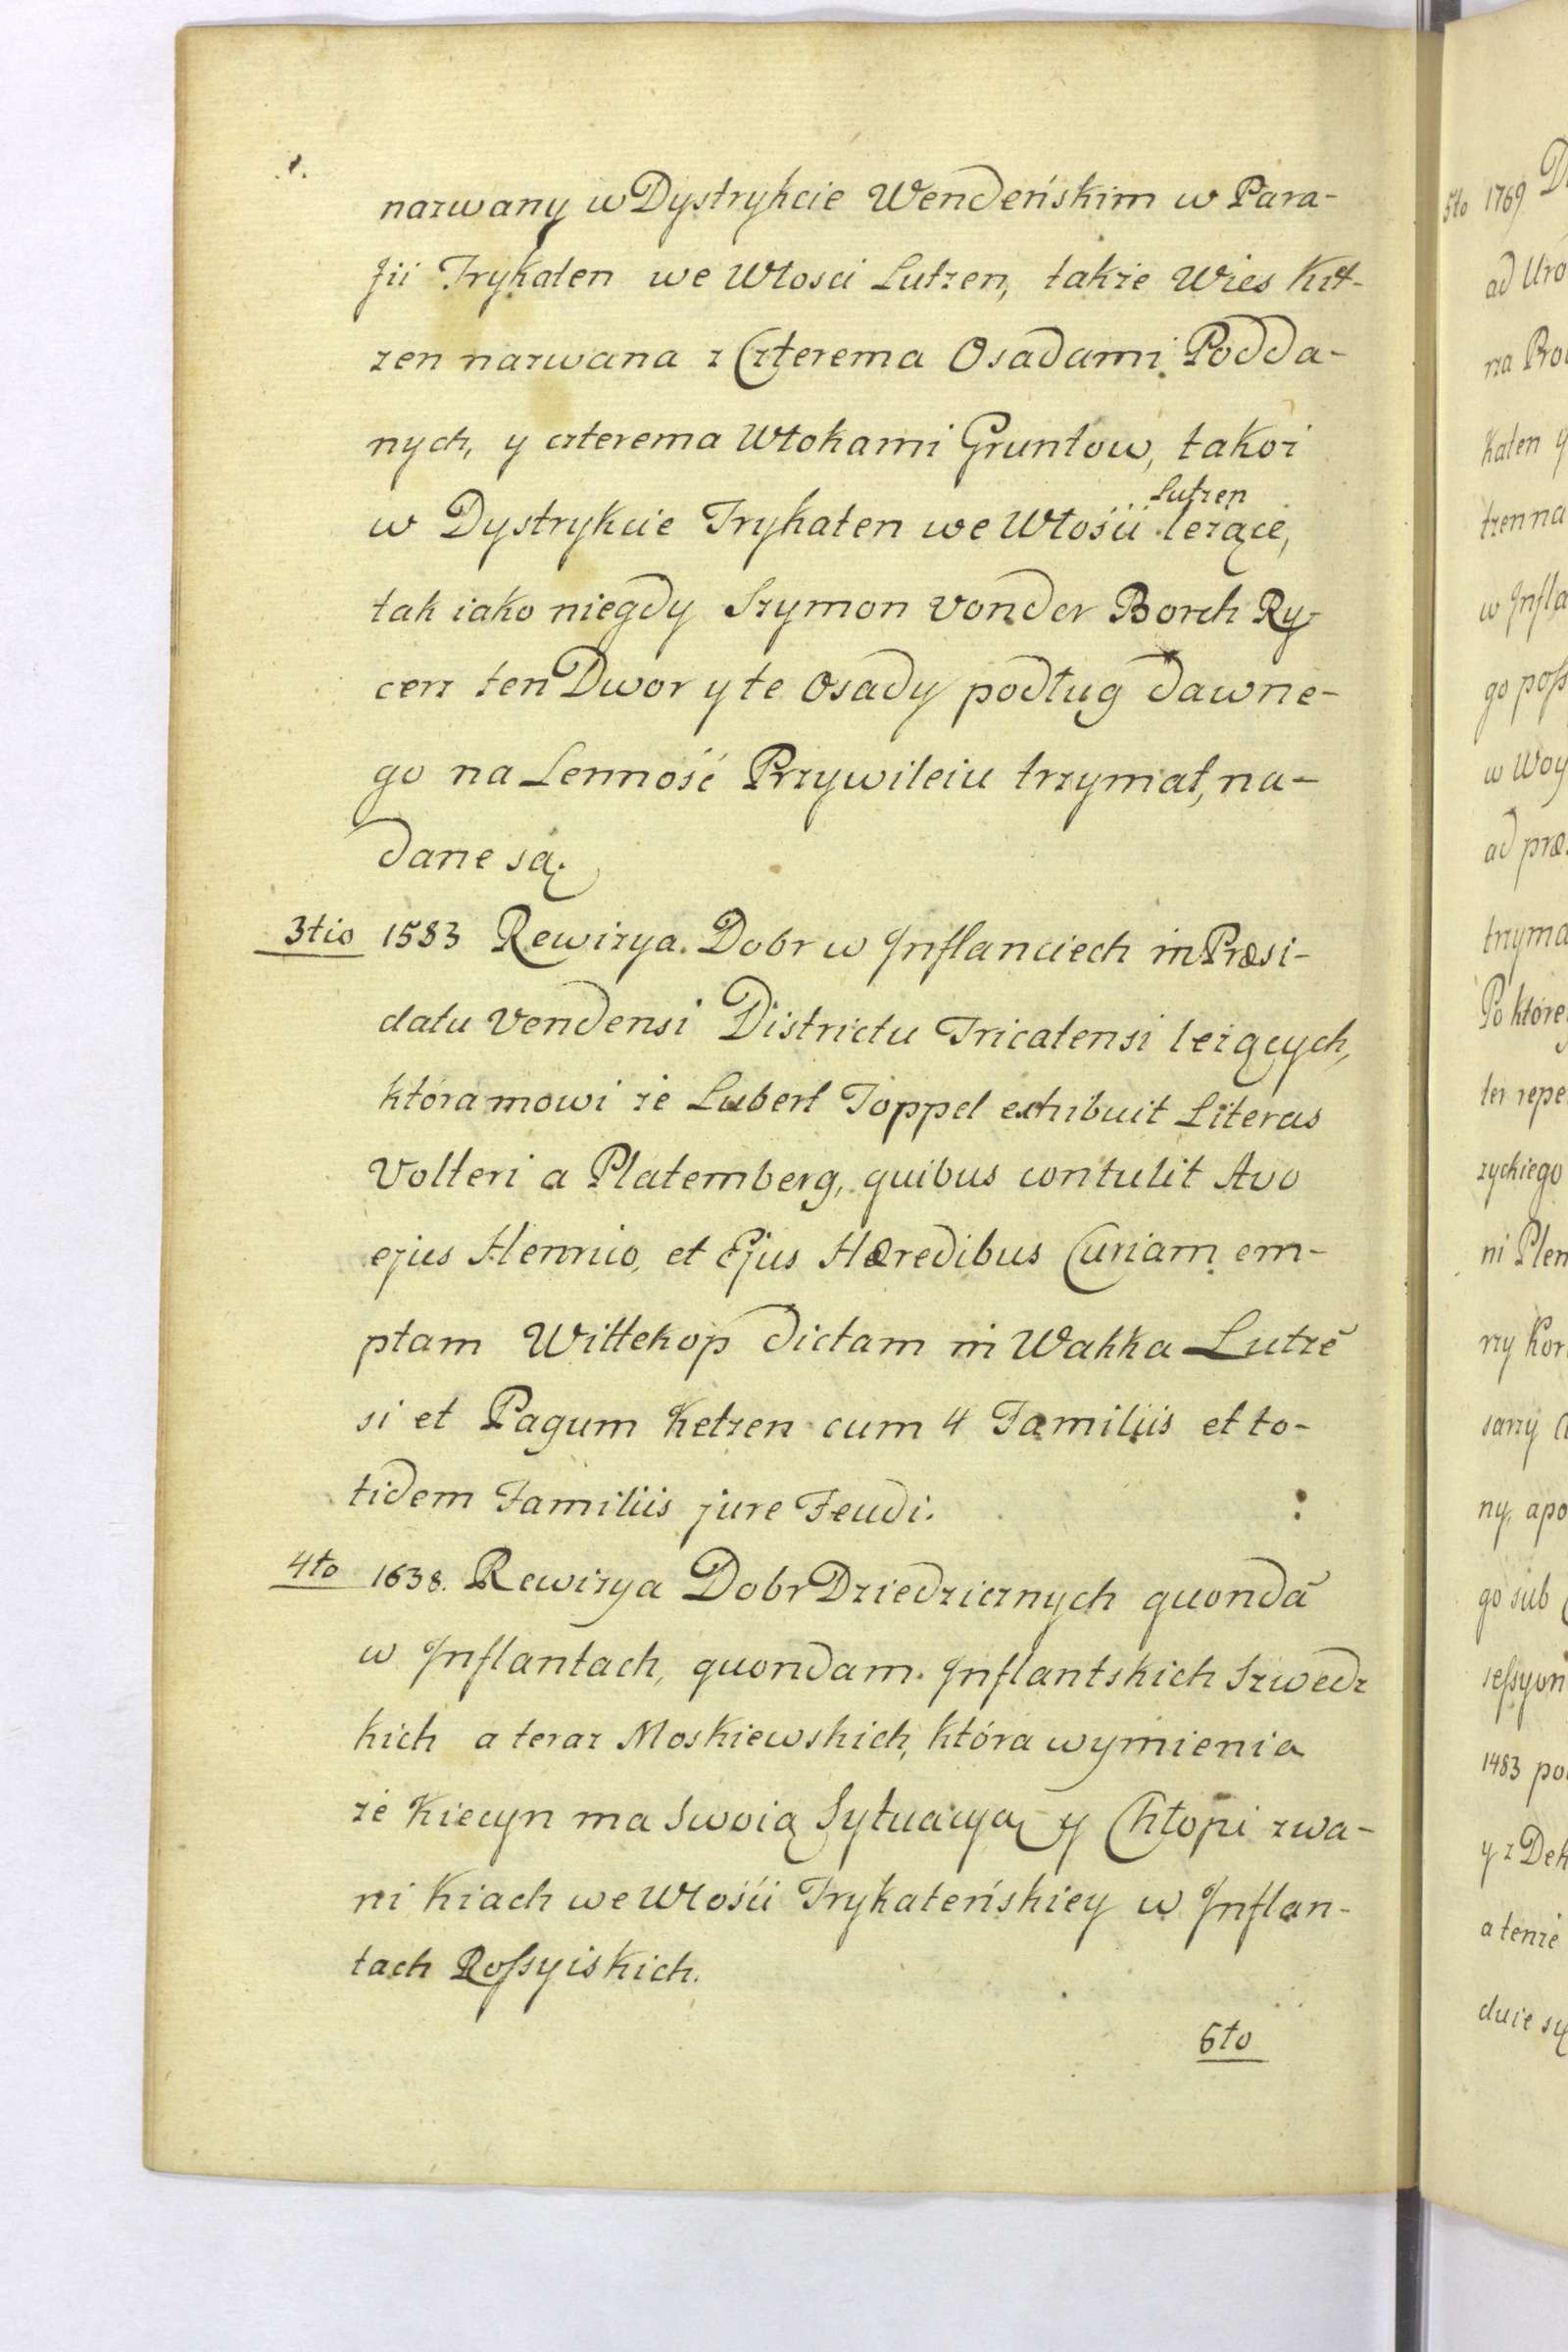 nazwany w Dystrykcie Wendeńskim w Para-
fii Trykaten we Włosci Lutzen, także Wies Kit-
zen nazwana z Czterema Osadami Podda-
nych, y czterema Włokami Gruntow, takoż
Lutzen
w Dystrykcie Trykaten we Włości leżące,
tak iako niegdy Szymon von der Borch Ry-
cerz ten Dwor y te Osady podług dawne-
go na Lenność Przywileiu trzymał, na-
dane są.
3tio 1583 Rewizya Dobr w Inflanciech in Præsi-
datu Vendensi Districtu Tricatensi leżących,
która mowi że Lubert Joppel exhibuit Literas
Volteri a Platemberg, quibus contulit Avo
ejus Henrico, et Ejus Hæredibus Curiam em-
ptam Wittekop dictam in Wakka Lutzē
si et Pagum Ketzen cum 4 Familiis et to-
tidem Familiis jure Feudi.
4to 1638. Rewizya Dobr Dziedzicznych quondā
w Inflantach, quondam Inflantskich Szwedz
kich a teraz Moskiewskich, która wymienia
że Kiecyn ma swoią Sytuacyą y Chłopi zwa-
ni Kiach we Włości Trykateńskiey w Inflan-
tach Rossyiskich.
5to
5to 1769
ad Uro
rza Pro
katen y
tzen na
w Infla
go poss
w Woy
ad præ
trzyma
Po które
ter repe
zyckiego
ni Plen
rzy Kor
sarzy
ny, apo
go sub
sessyon
1483 po
y z Dek
a tenże
duie się